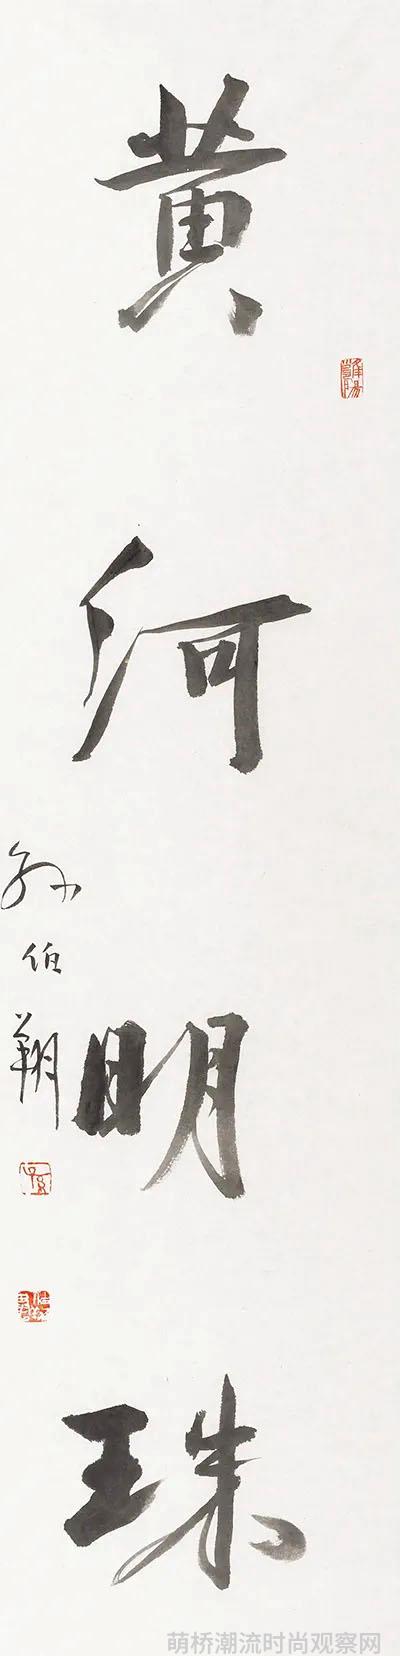 黄河明珠
孙伯翔
萌桥潮流时尚观察网